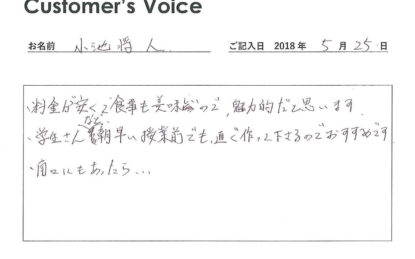 Customer's Voice
お名前 小池将人 ご記入日 2018 年 5 月 25 日
・料金が安くて食事も美味しいので、魅力的だと思います
・学生さんなど朝早い授業前でも、直ぐ作って下さるのでおすすめです
・南口にもあったら...